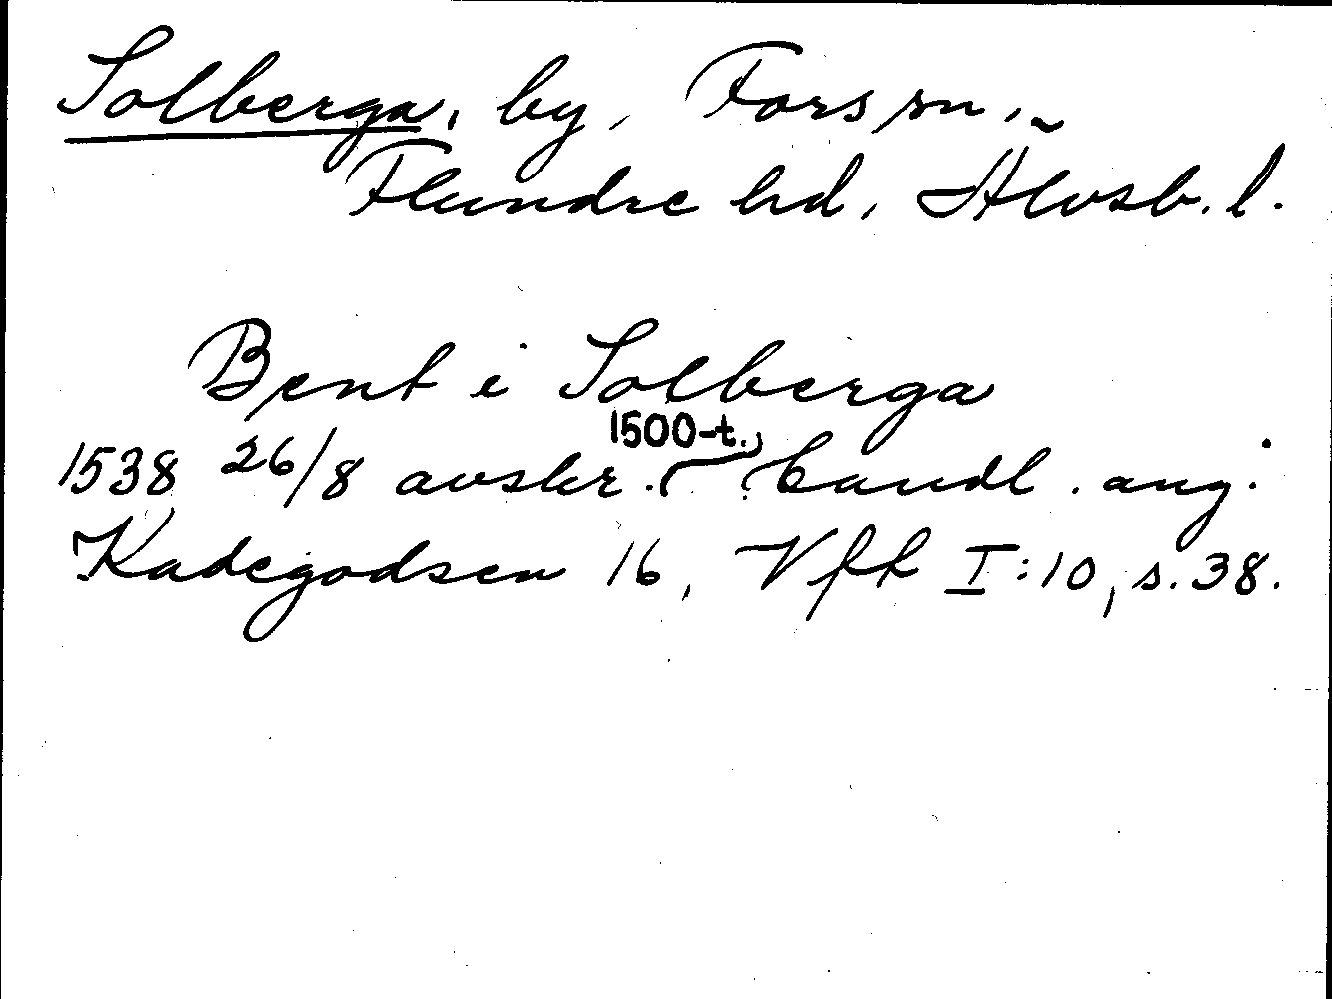 Solberga, by, Fors sn.,
Flundre hd, Älvsb. l.
Bent i Solberga
1538 26/8 avskr. 1500-t., handl. ang.
Kadegodsen 16, Vfk I:10, s. 38.